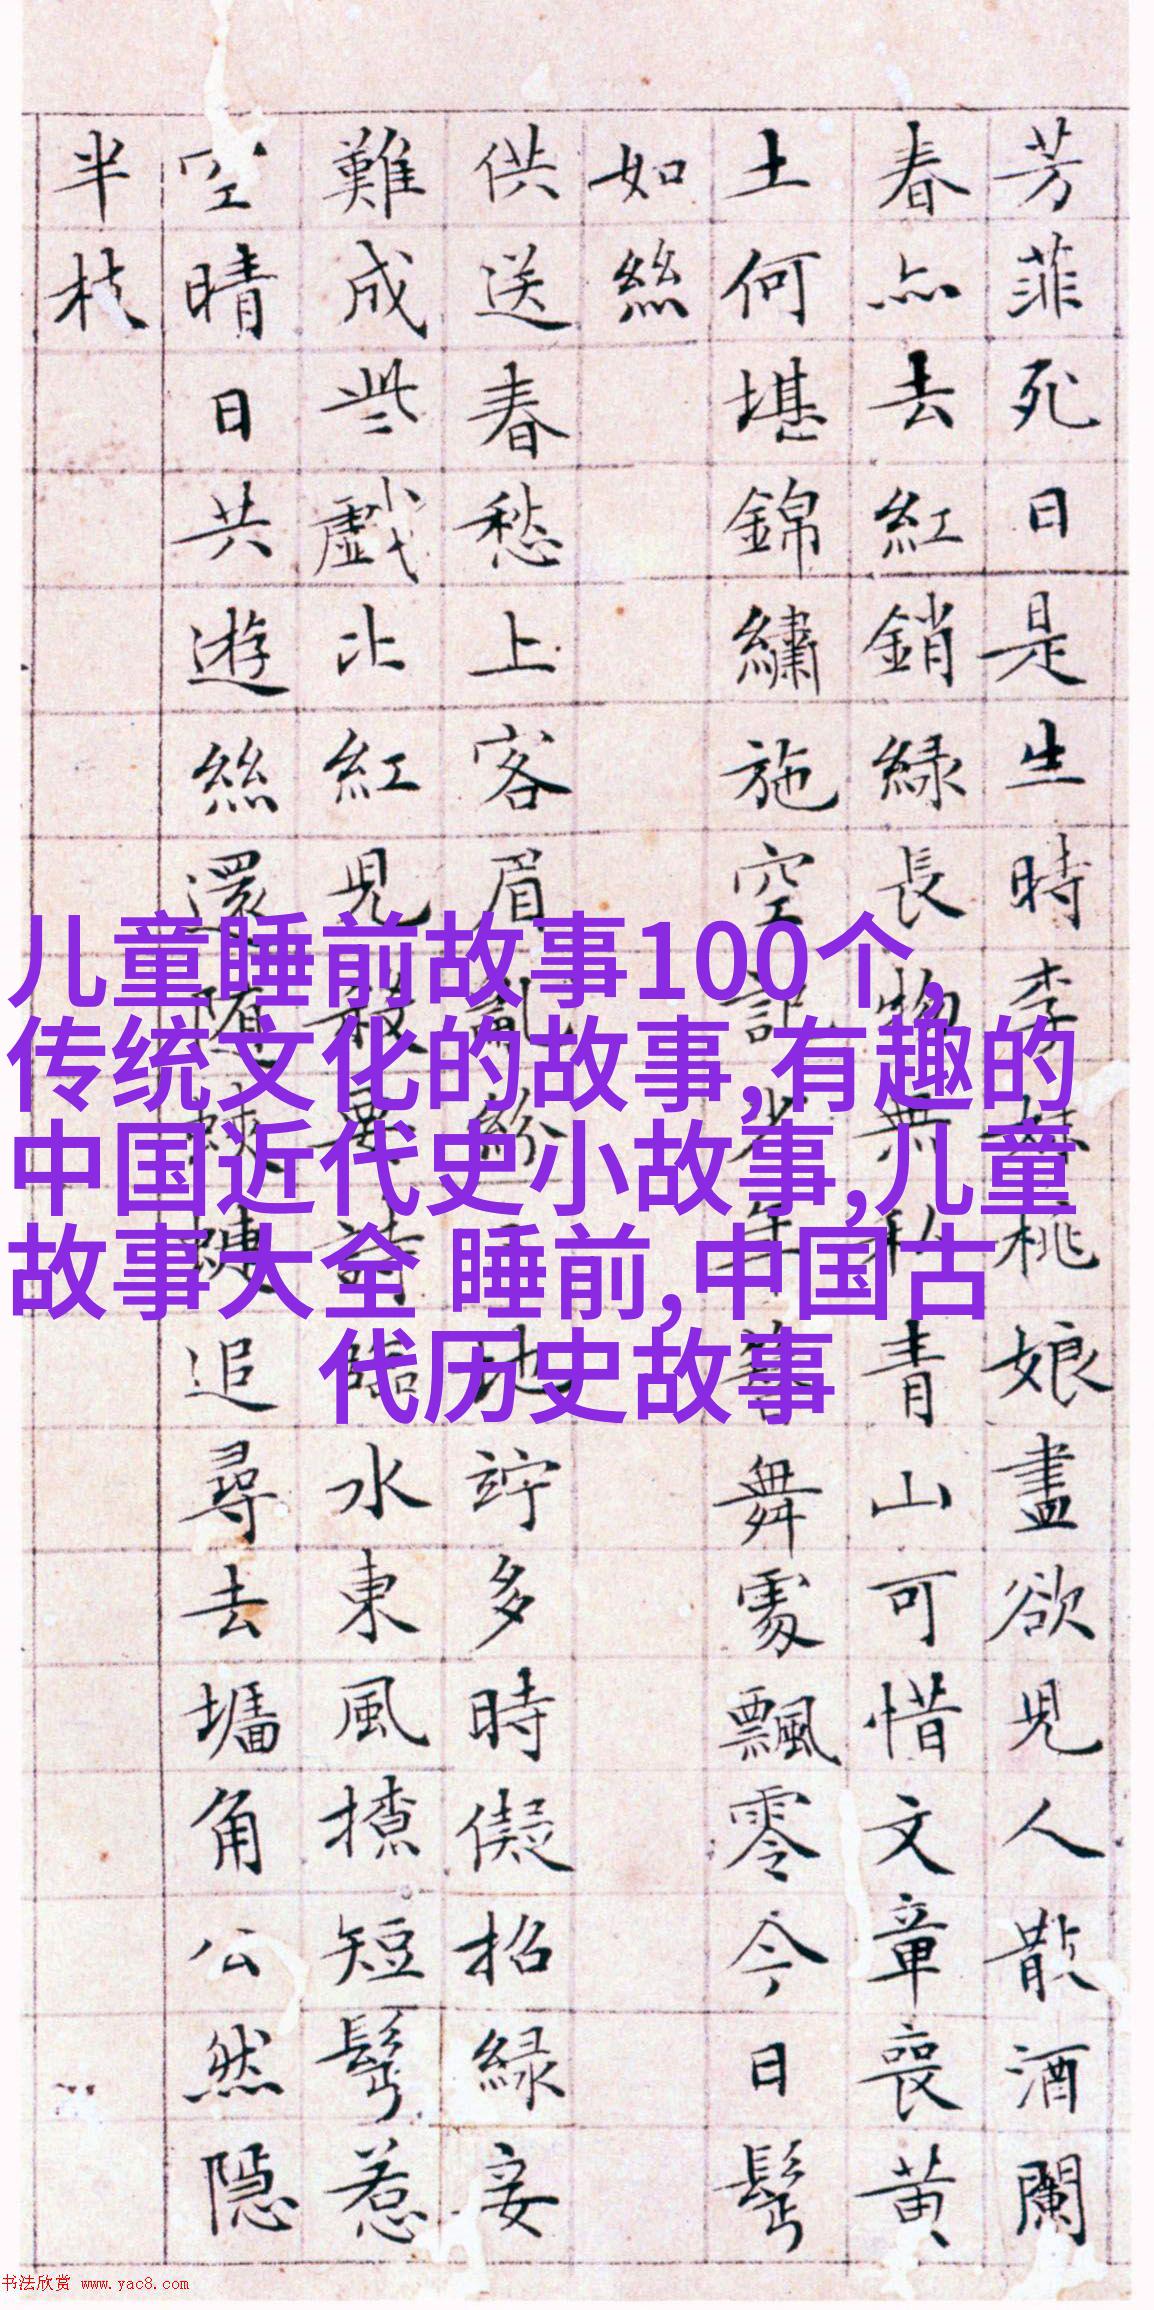 芳菲死日是生時李妹桃娘盡欲兒人散酒闌
春亦去紅銷綠長物無私青山可惜文章喪黃
土何堪錦繡施空記少年簪舞處飄零今日鬢
如絲
供送春愁上客眉亂紛地竚多時儗招綠妾
難成些戲比紅兒殺要詩臨水東風撩短鬢惹
空晴日共遊絲還隨蛺蝶追尋去墻角公然隱
半枝
儿童睡前故事100个,
传统文化的故事,有趣的
中国近代史小故事,儿童
故事大全 睡前,中国古
代历史故事
书法欣赏 www.yac8.com